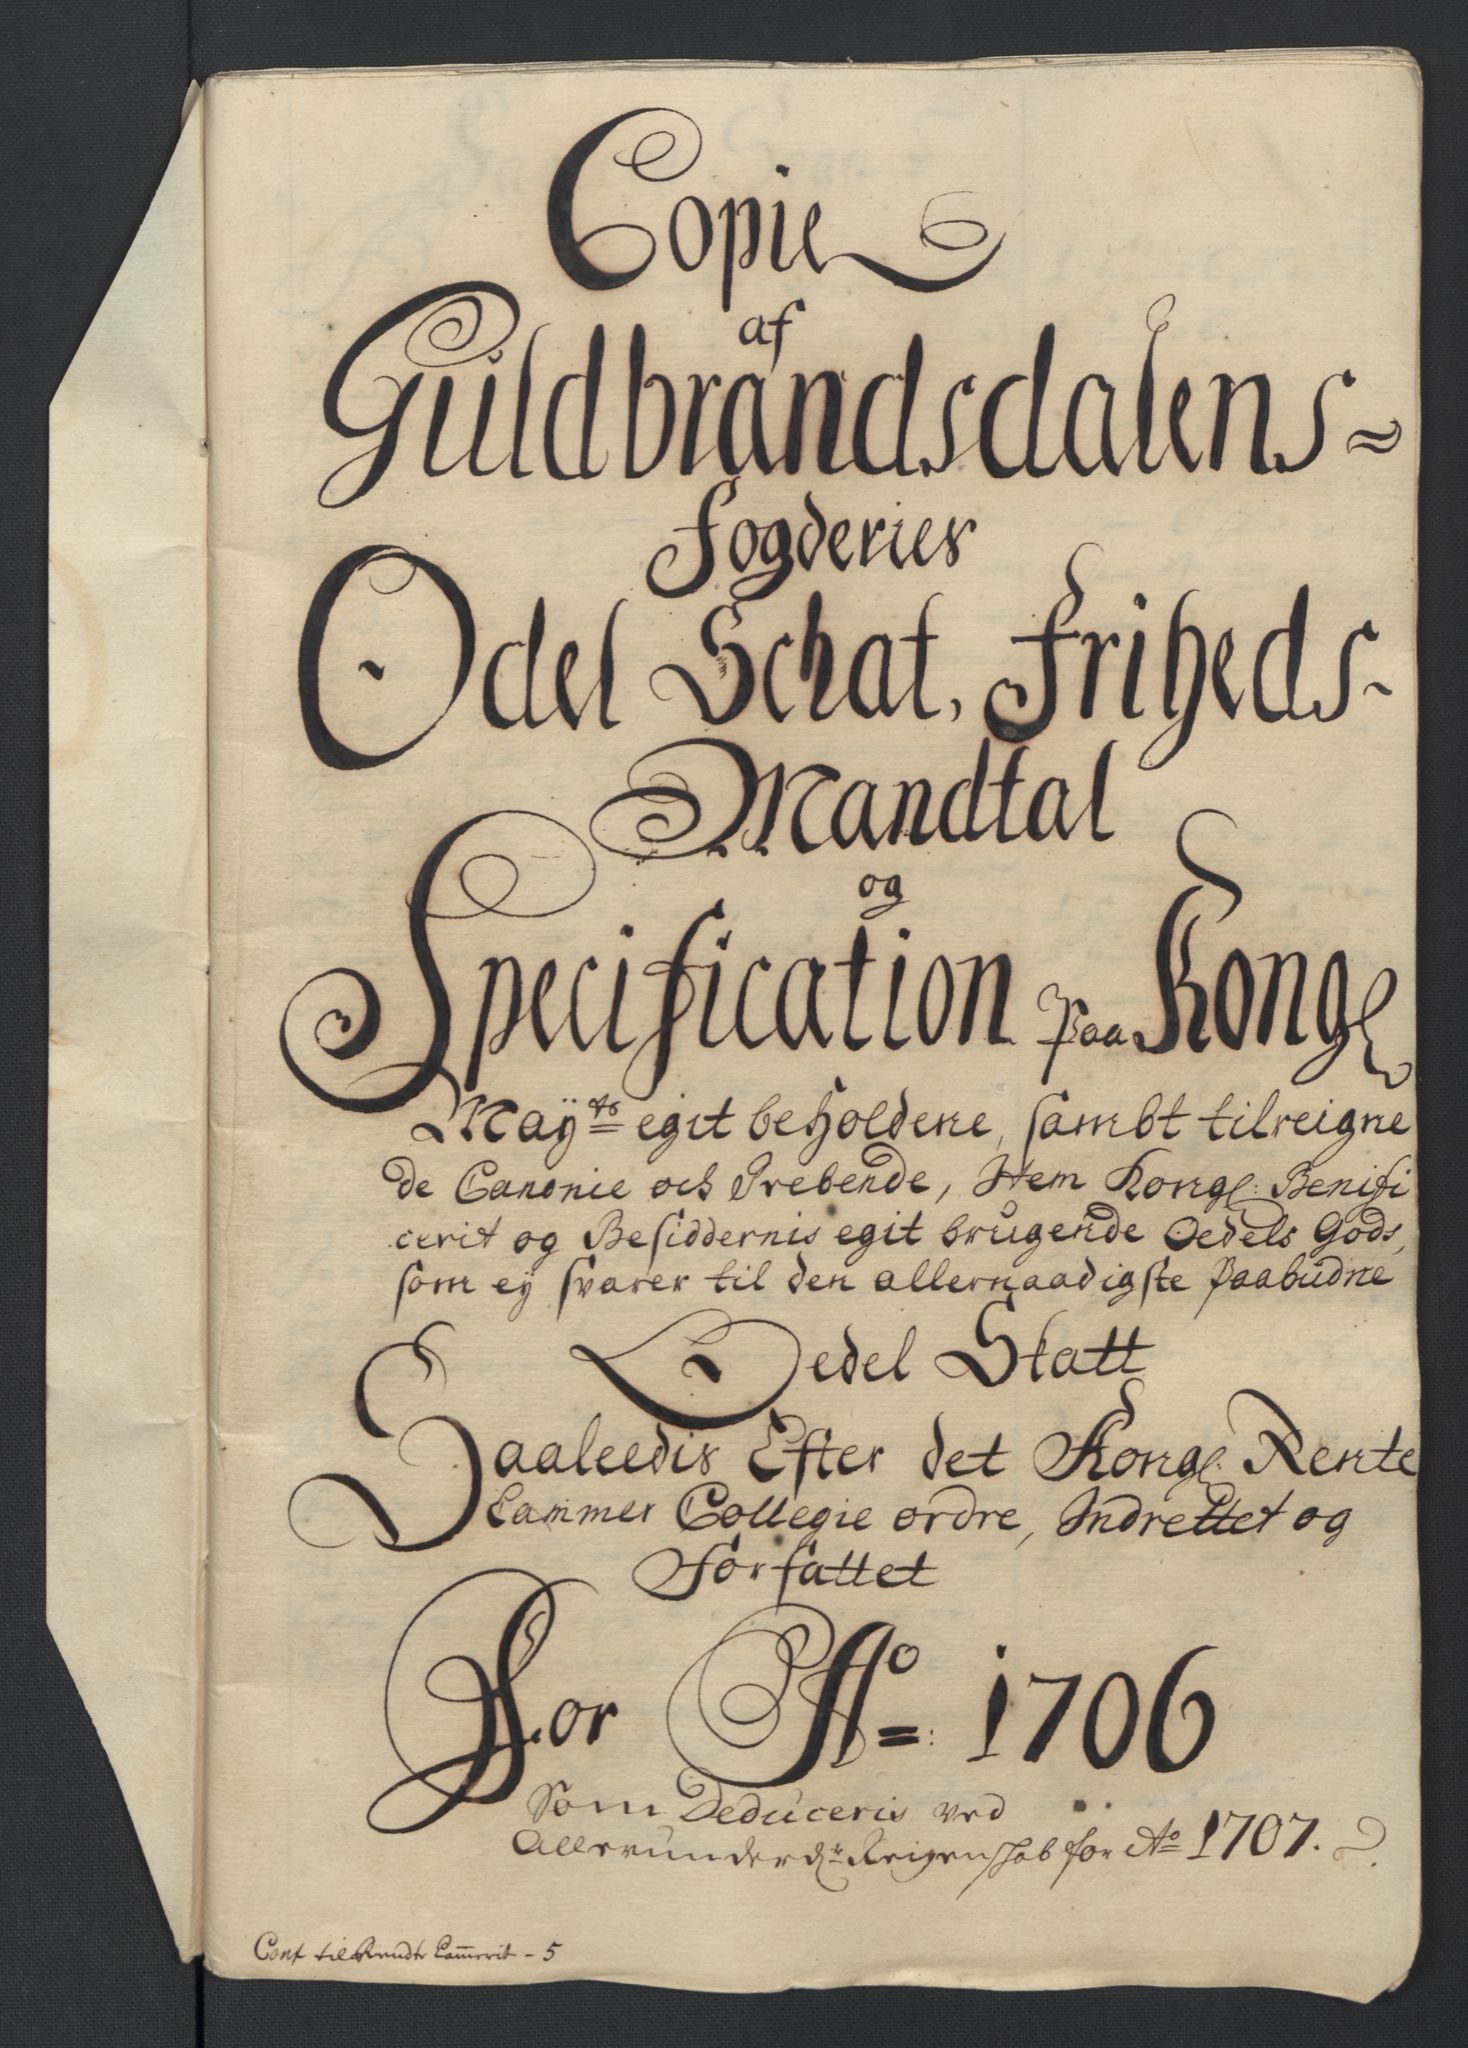 Copie
af
Guldbrandsdalens-
fogderies
Odel Schat, friheds-
Mandtal
og
Specification paa Kongl
Mayts egit beholdene, sambt tilreigne
de Canonie och Prebende, Item Kongl: Benifi
cerit og Besiddernis egit brugende Oedels Gods,
som ey svarer til den allernaadigste paabudne
Oedel Skatt
Saaleedis Efter det Kongl: Rente
Cammer Collegie ordre, Indrettet og
forfattet
For Ao: 1706
Som Deduceris ved
Allerunderdr. Reigenskab for Ao 1707.
Conf til Rendte Cammerit - 5